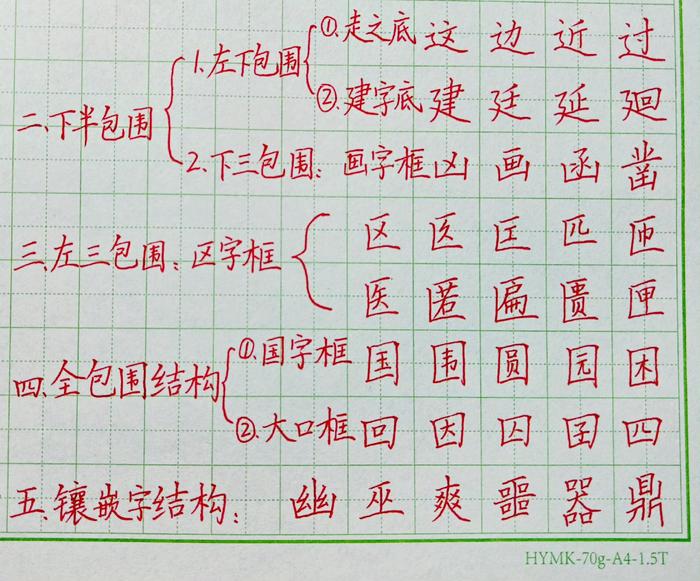 ①.走之底 这 边 近 过
1.左下包围
②.建字底 建 廷 延 廻
二、下半包围
2.下三包围：画字框 凶 画 函 凿
区 医 匡 匹 匝
三、左三包围：区字框
医 匿 匾 匮 匣
①.国字框 国 围 圆 园 困
四、全包围结构
②.大口框 回 因 囚 囝 四
五、镶嵌字结构： 幽 巫 爽 噩 器 鼎
HYMK-70g-A4-1.5T